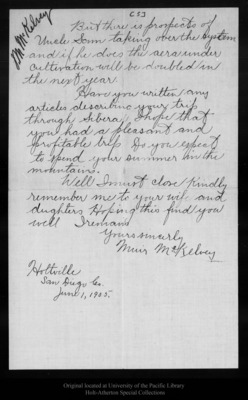 [2]
M. McKelvey
But there is prospects of
Uncle Sam taking over the system
and if he does the aera under
cultivation will be doubled in
the next year.
Have you written any
articles describing your trip
through Sibera. I hope that
you had a pleasant and
profitable trip. Do you expect
to spend your summer in the
mountains.
Well I must close kindly
remember me to your wife and
dughters Hoping this find you
well I remain
Yours sincerly
Muir McKelvey
Holtville
San Diego Co.
June 1, 1905.
Original located at University of the Pacific Library
Holt-Atherton Special Collections